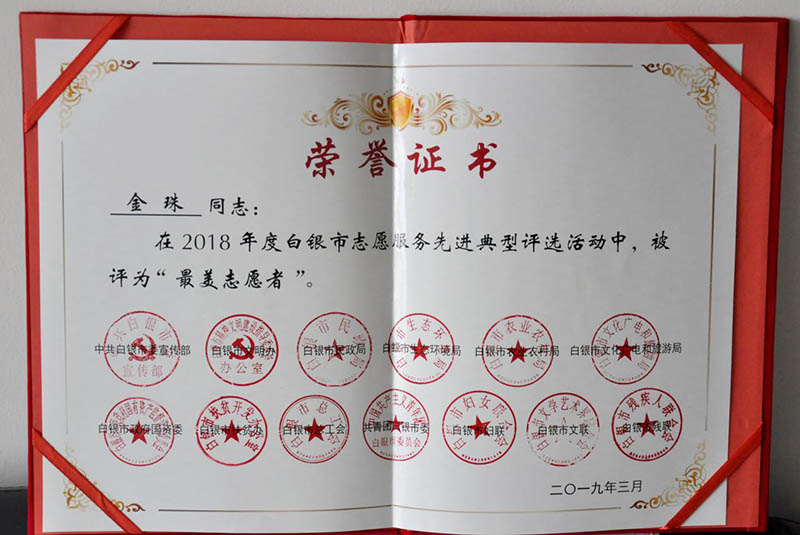 荣誉证书
金珠 同志：
在 2018 年度白银市志愿服务先进典型评选活动中，被
评为“最美志愿者”。
中共白银市委宣传部 白银市文明办 白银市民政局 白银市生态环境局 白银市农业农村局 白银市文化广电和旅游局
白银市政府国资委 白银市扶贫办 白银市总工会 共青团白银市委 白银市妇联 白银市文联 白银市残联
宣传部 办公室
白银市委员会
二〇一九年三月